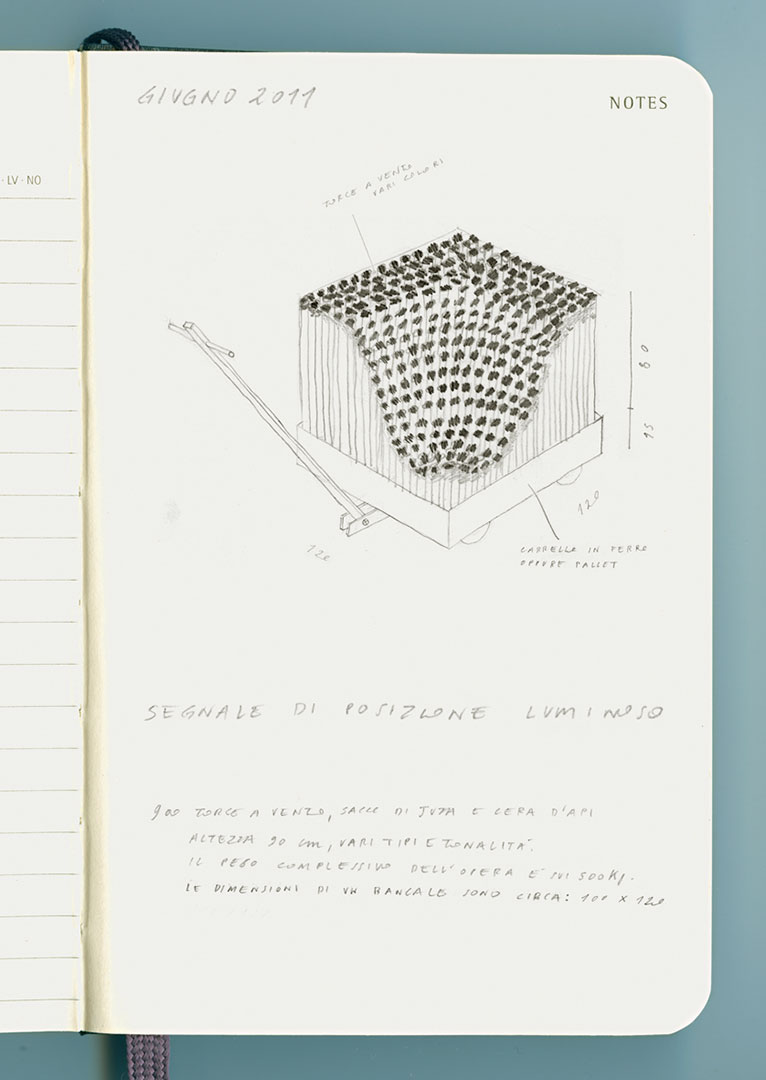 GIUGNO 2011
NOTES
· LV · NO
TORCE A VENTO
VARI COLORI
80
15
120
120
CARRELLO IN FERRO
OPPURE PALLET
SEGNALE DI POSIZIONE LUMINOSO
900 TORCE A VENTO, SACCO DI JUTA E CERA D'API
ALTEZZA 90 cm, VARI TIPI E TONALITÀ.
IL PESO COMPLESSIVO DELL'OPERA E' SUI 500 Kg.
LE DIMENSIONI DI UN BANCALE SONO CIRCA: 100 X 120